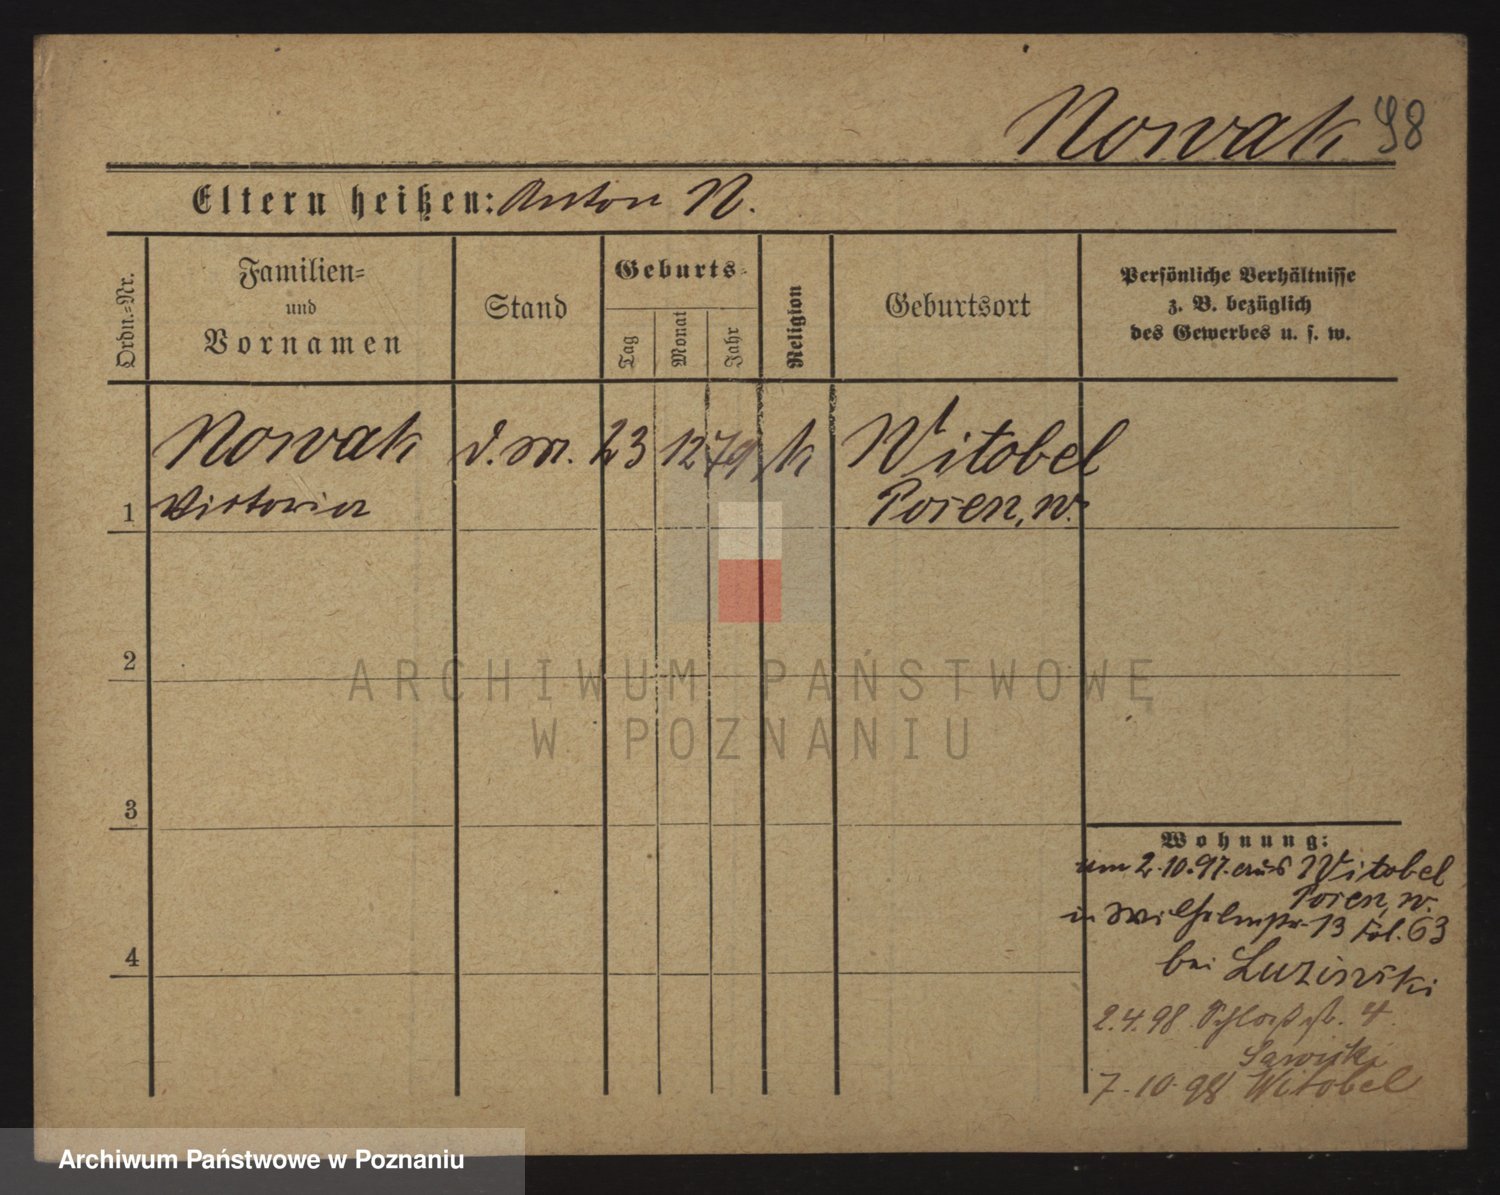 Nowak 98
Eltern heißen: Anton N.
Ordn.=Nr.
Familien=
und
Vornamen
Stand
Geburts=
Tag
Monat
Jahr
Religion
Geburtsort
Persönliche Verhältnisse
z. B. bezüglich
des Gewerbes u. s. w.
Nowak d. M. 23 12 79 k Witobel
1 Victoria Posen, w.
2
3
4
Wohnung:
um 2.10.97. aus Witobel
Posen, w.
in Wilhelmstr. 13 Fol. 63
bei Luzinski
2.4.98 Schloßstr. 4.
Sawiski
7.10.98 Witobel
ARCHIWUM PAŃSTWOWE
W POZNANIU
Archiwum Państwowe w Poznaniu